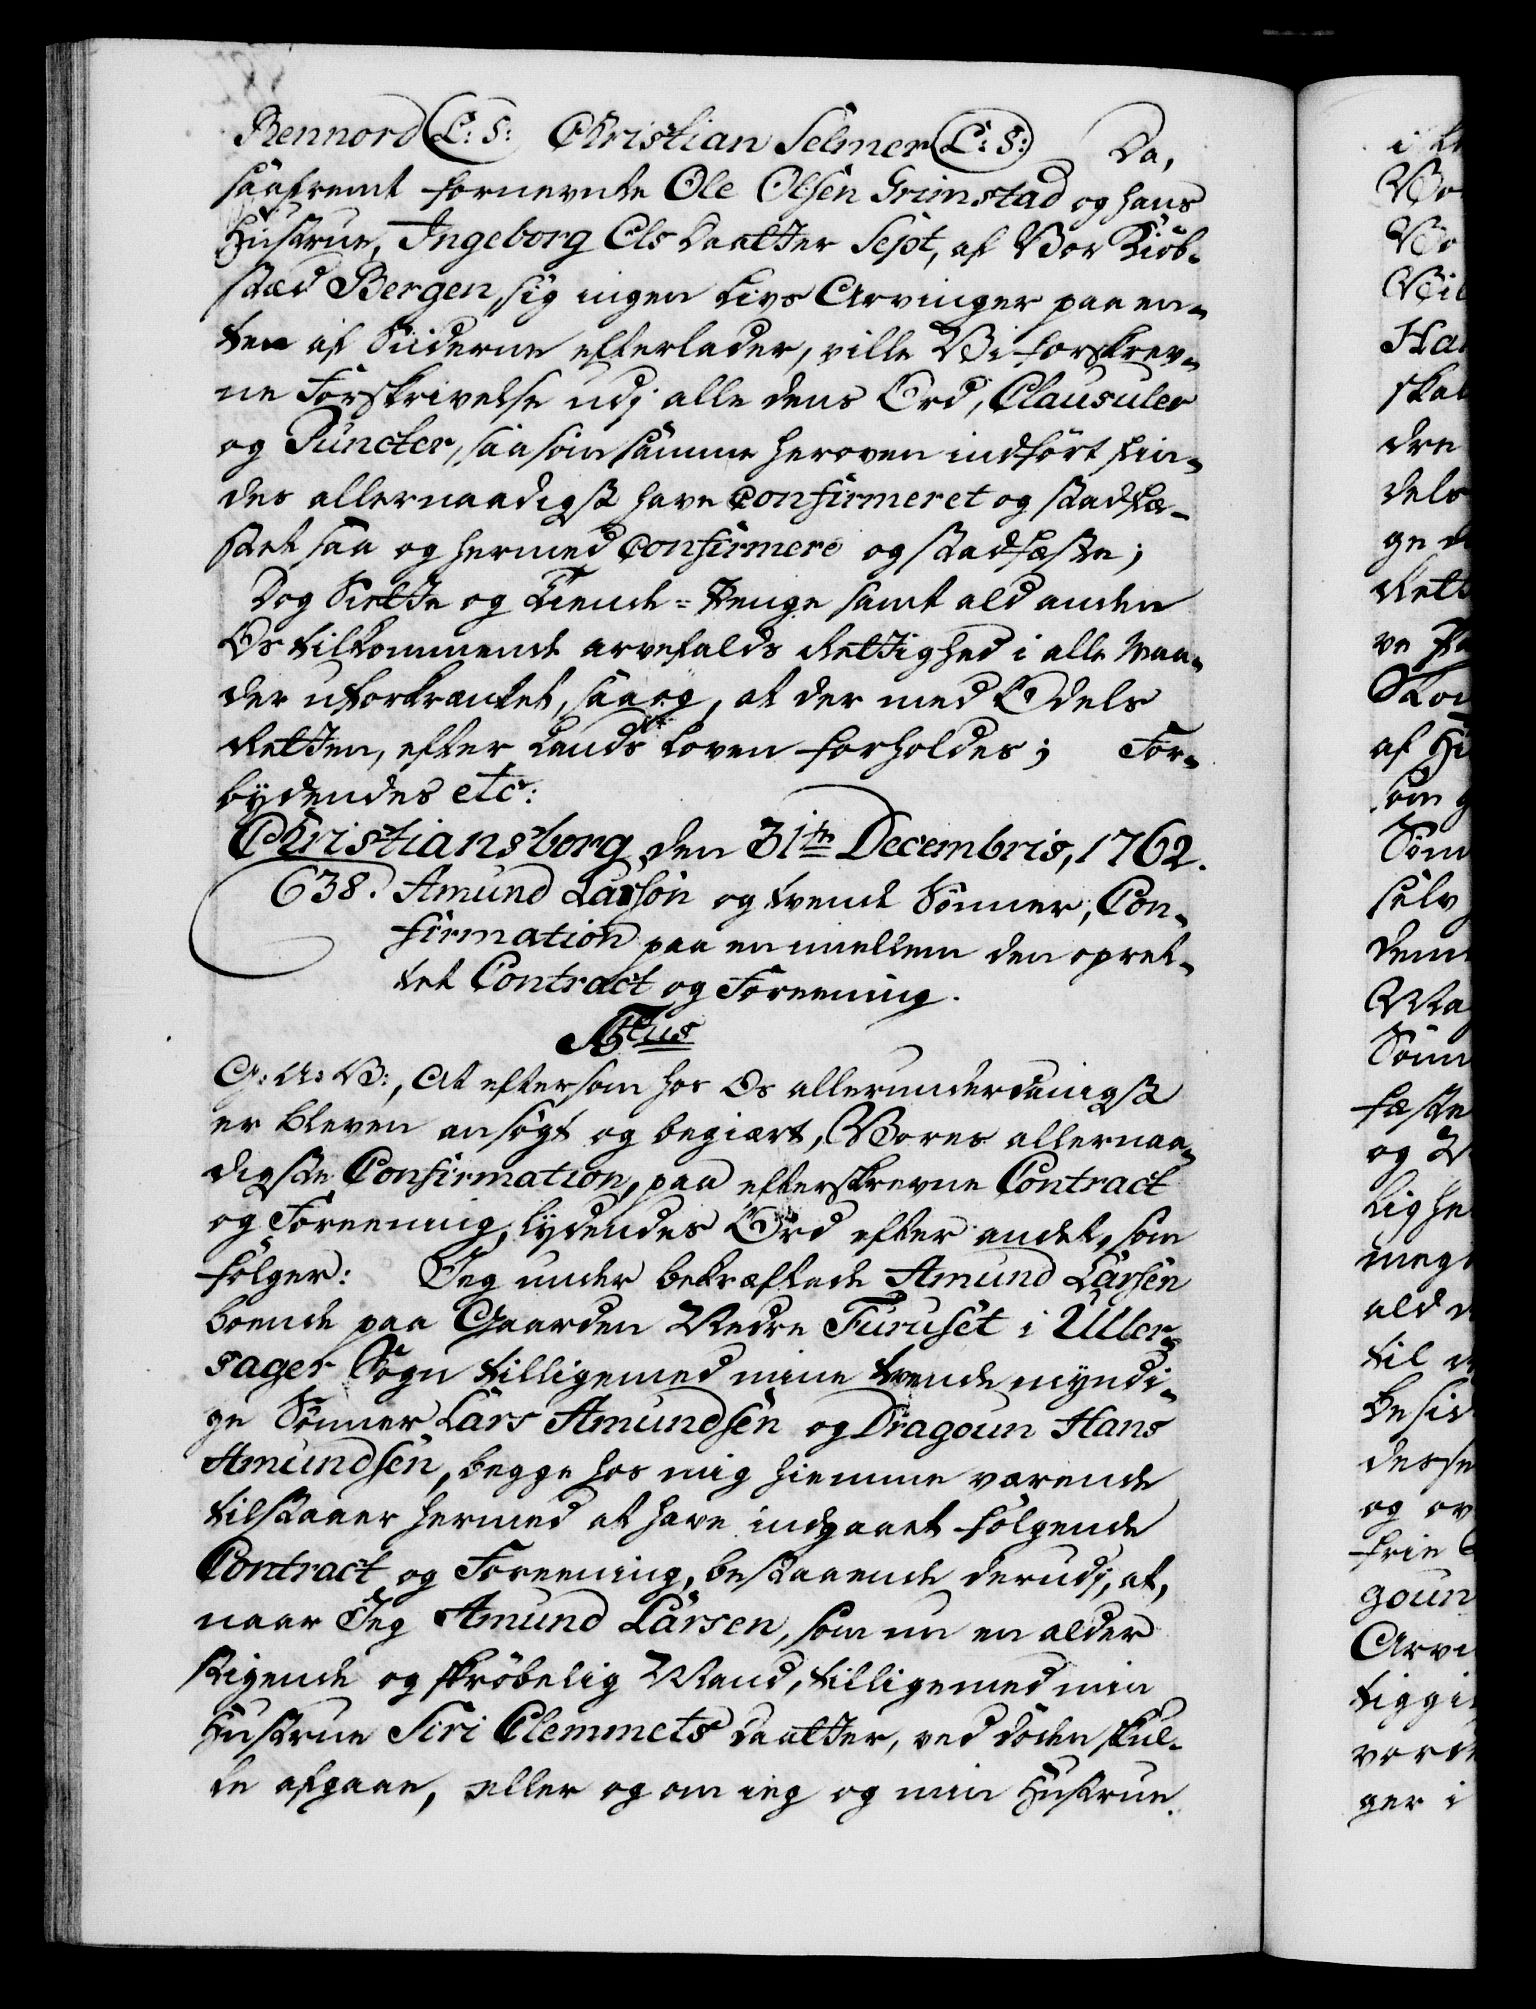 Rennord L: S: Christian Selmer L: S: Da,
saafremt fornevnte Ole Olsen Grimstad og hans
Hustrue, Ingeborg Ols Daatter Sejot, af Vor Kiöb-
stæd Bergen, sig ingen Livs Arvinger paa en-
ten af Siderne efterlader, ville Vi forskrev-
ne Forskrivelse udj alle dens Ord, Clausuler
og Puncter, saasom samme heroven indfört fin-
des allernaadigst have Confirmeret og stadfæ-
stet saa og hermed Confirmere og stadfæste;
Dog Siette og Tiende-Penge samt ald anden
Os tilkommende arvefalds Rettighed i alle Maa-
der uforkrænket, saa og, at der med Odels
Retten, efter Lands Loven forholdes; For-
bydendes etc:
Christiansborg den 31te Decembris, 1762.
638. Amund Larsön og tvende Sönner, Con-
firmation paa en imellem dem opret-
tet Contract og Foreening.
Afus
G: A: V:, At eftersom hos Os allerunderdanigst
er bleven ansögt og begiært, Vores allernaa-
digste Confirmation, paa efterskrevne Contract
og Foreening, lydendes Ord efter andet, som
fölger: Jeg under bekræftede Amund Larsen
boende paa Gaarden Nedre Furuset i Ullen-
sager Sogn tilligemed mine tvende myndi-
ge Sönner Lars Amundsen og Dragoun Hans
Amundsen, begge hos mig hiemme værende
tilstaaer hermed at have indgaaet fölgende
Contract og Foreening, bestaaende derudj, at,
naar Jeg Amund Larsen, som nu en alder
stigende og skröbelig Mand, tilligemed min
Hustrue Siri Clemmets Daatter, ved döden skul-
de afgaae, eller og om ieg og min Hustrue